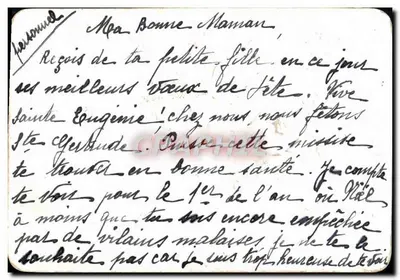 personnel
Ma Bonne Maman,
Reçois de ta petite fille en ce jour
ses meilleurs vœux de fête. Vive
Sainte Eugénie! chez nous, nous fêtons
Ste Gertrude. Puisse cette missive
te trouver en bonne santé. Je compte
te voir pour le 1er de l'an ou Noël
à moins que tu sois encore empêchée
par de vilains malaises, je ne te le
souhaite pas car je suis trop heureuse de te voir